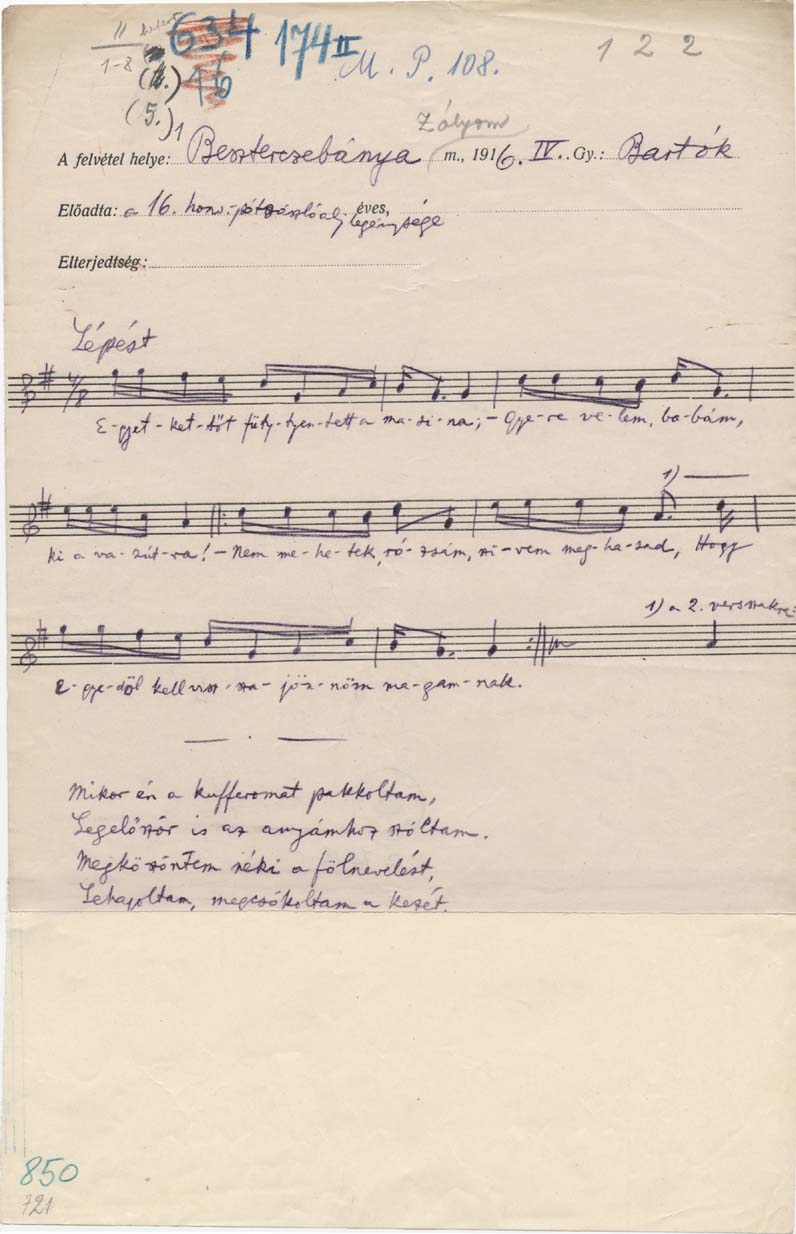 II
1-8
634 174 II M. P. 108. 1 2 2
16
(5.)1
Zólyom
A felvétel helye: Beszterczebánya m., 1916. IV. Gy.: Bartók
Előadta: a 16. honv. pótzászlóalj éves, legénysége
Elterjedtség:
Lépést
4/8
E-gyet-ket-tőt füty-tyen-tett a ma-si-na; - Gye-re ve-lem, ba-bám,
1)
ki a va-sút-ra! - Nem me-he-tek, ró-zsám, szi-vem meg-ha-sad, Hogy
1) a 2. versszakra:
E-gye-döl kell visz-sza-jön-nöm ma-gam-nak.
Mikor én a kufferomat pakkoltam,
Legelőször is az anyámhoz szóltam.
Megköszöntem néki a fölnevelést,
Lehajoltam, megcsókoltam a kezét.
850
721